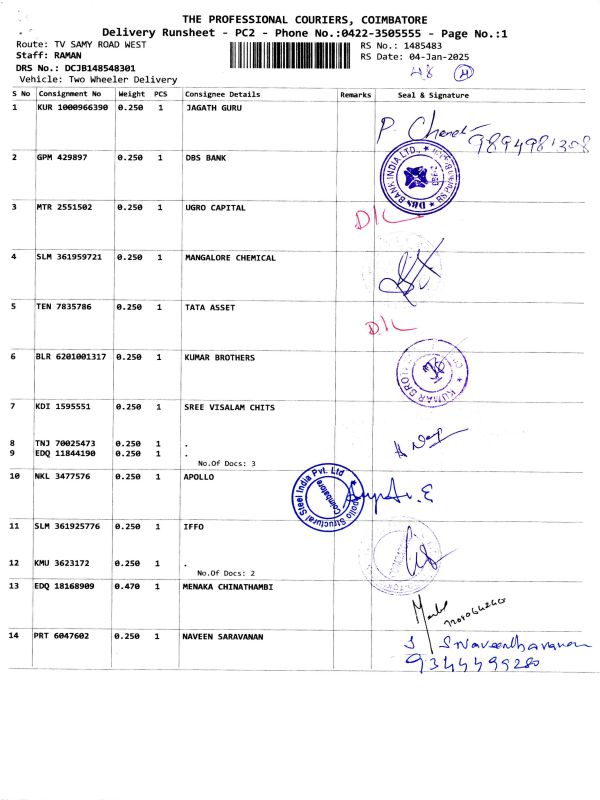 THE PROFESSIONAL COURIERS, COIMBATORE
Delivery Runsheet - PC2 - Phone No.:0422-3505555 - Page No.:1
Route: TV SAMY ROAD WEST
RS No.: 1485483
Staff: RAMAN
RS Date: 04-Jan-2025
DRS No.: DCJB148548301
Vehicle: Two Wheeler Delivery
48
S No Consignment No Weight PCS Consignee Details Remarks Seal & Signature
1 KUR 1000966390 0.250 1 JAGATH GURU
P. 9894981308
2 GPM 429897 0.250 1 DBS BANK
DBS BANK INDIA LTD.,
3 MTR 2551502 0.250 1 UGRO CAPITAL
D/L
4 SLM 361959721 0.250 1 MANGALORE CHEMICAL
5 TEN 7835786 0.250 1 TATA ASSET
D/L
6 BLR 6201001317 0.250 1 KUMAR BROTHERS
KUMAR BROTHERS
7 KDI 1595551 0.250 1 SREE VISALAM CHITS
8 TNJ 70025473 0.250 1 .
9 EDQ 11844190 0.250 1 .
No.Of Docs: 3
10 NKL 3477576 0.250 1 APOLLO
Apollo Structural Steel India Pvt. Ltd
Coimbatore
11 SLM 361925776 0.250 1 IFFO
12 KMU 3623172 0.250 1 .
No.Of Docs: 2
13 EDQ 18168909 0.470 1 MENAKA CHINATHAMBI
14 PRT 6047602 0.250 1 NAVEEN SARAVANAN
S Naveensaravanan
9344499280